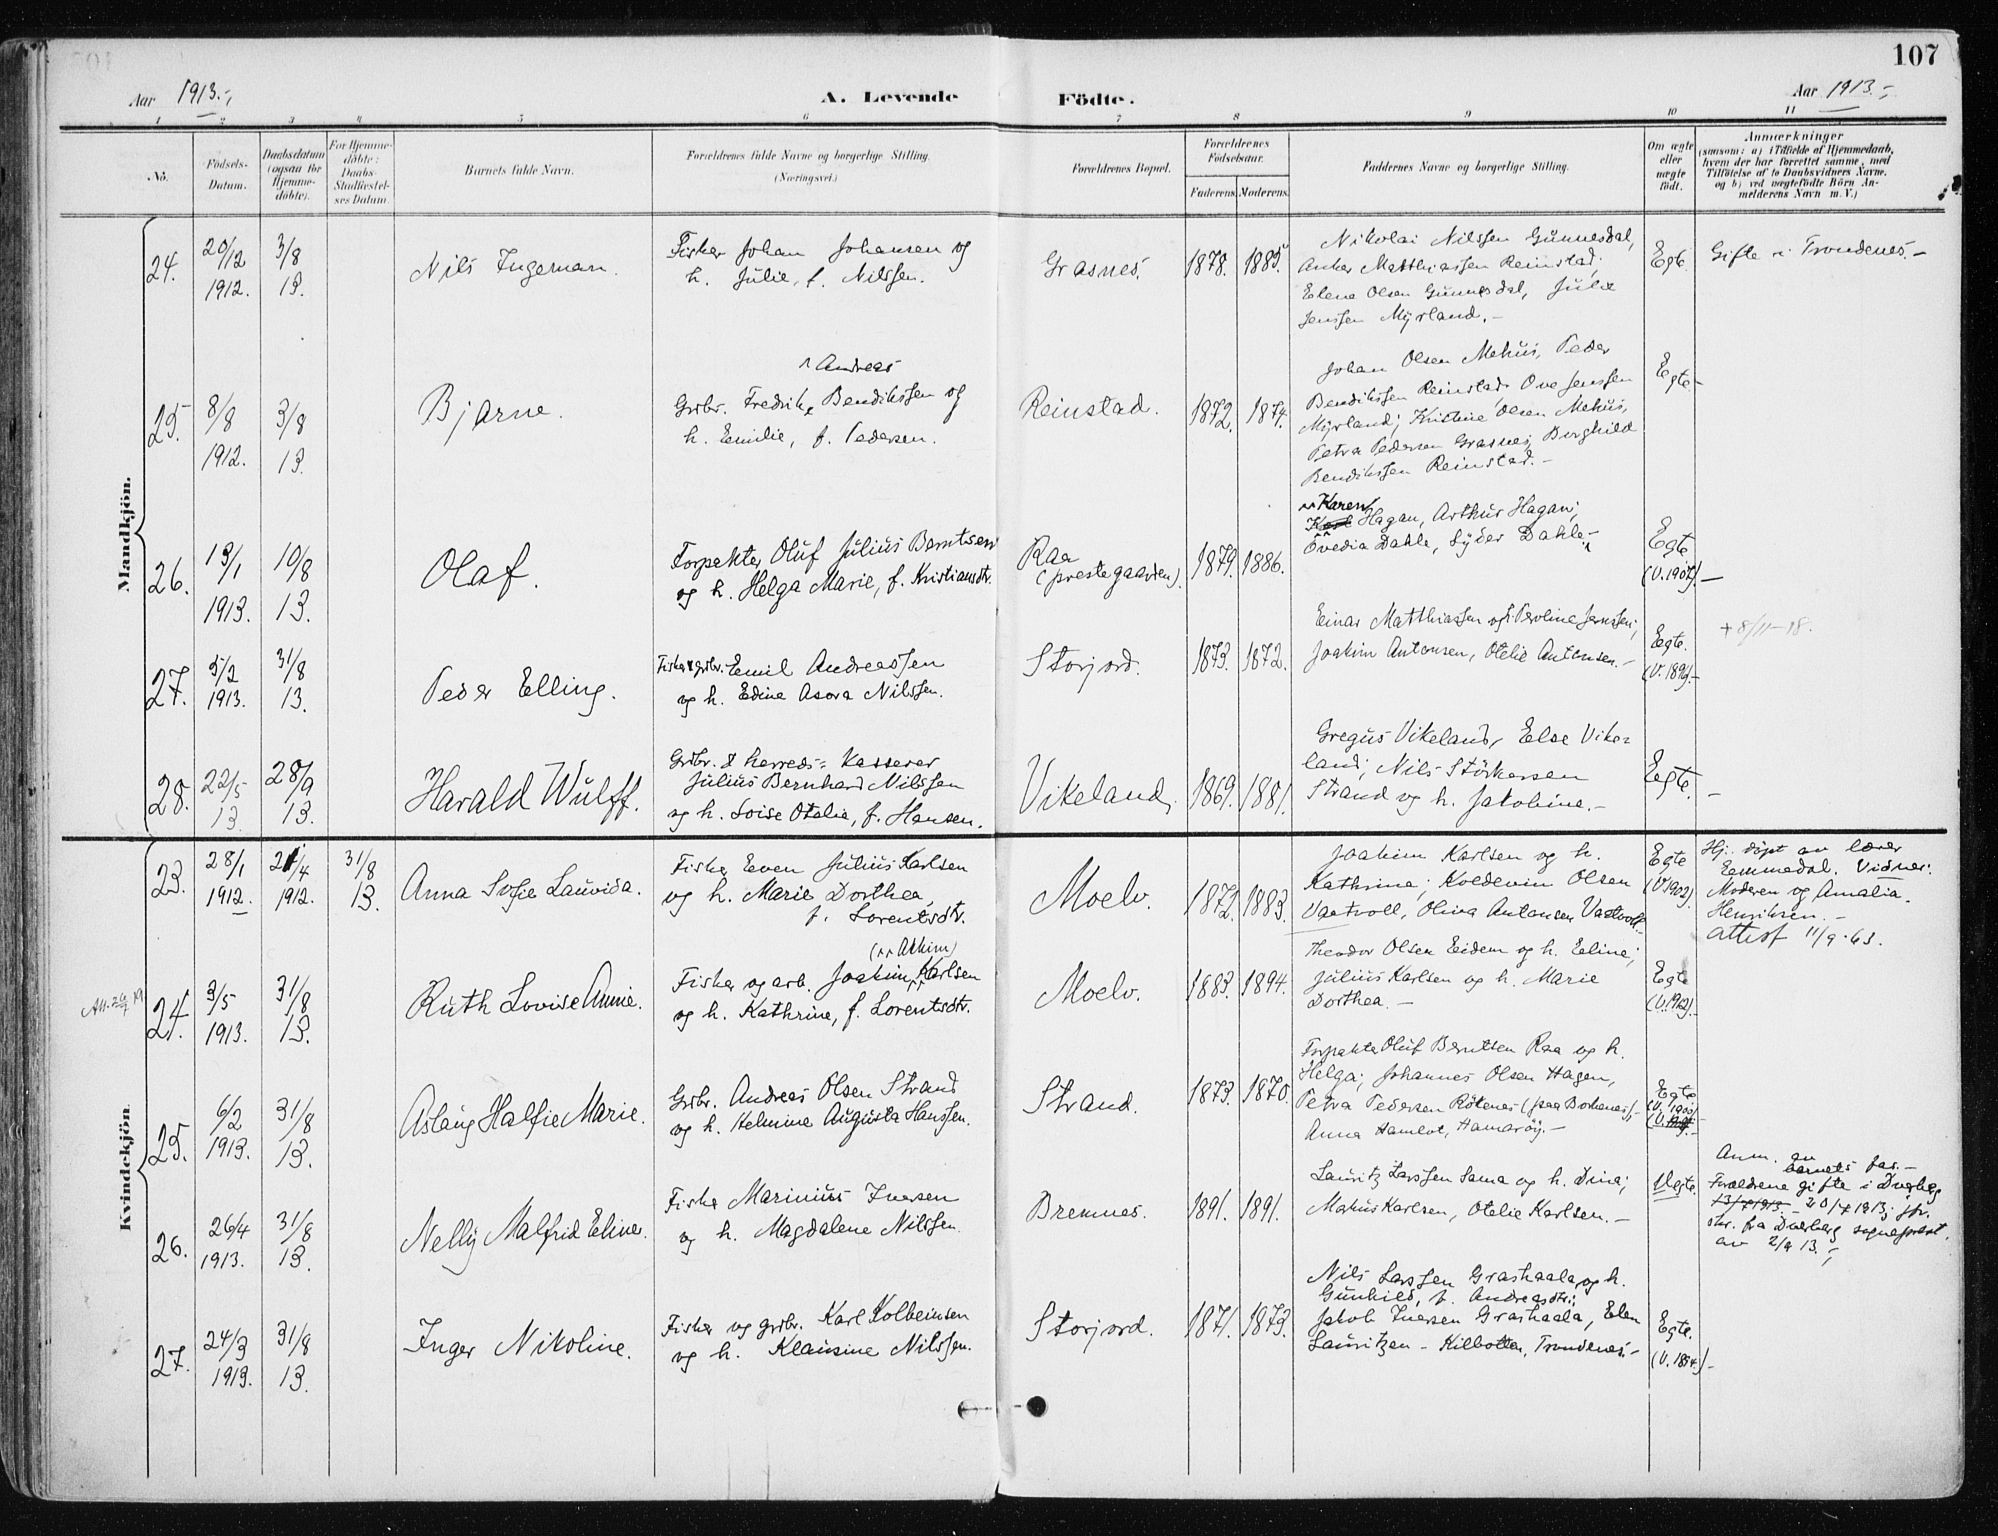 107
Aar 1913.-,
A. Levende Födte.
Aar 1913.-,
1 2 3 4 5 6 7 8 9 10 11
No.
Födsels-
Datum.
Daabsdatum
(ogsaa for
Hjemme-
döbte).
For Hjemme-
döbte:
Daabs-
Stadfæstel-
ses Datum.
Barnets fulde Navn.
Forældrenes fulde Navne og borgerlige Stilling.
(Næringsvei.)
Forældrenes Bopæl.
Forældrenes
Födselsaar.
Faderens. Moderens.
Faddernes Navne og borgerlige Stilling.
Om ægte
eller
uægte
födt.
Anmærkninger
(saasom: a) i Tilfælde af Hjemmedaab,
hvem der har forrettet samme, med
Tilföielse af to Daabsvidners Navne,
og b) ved uægtefödte Börn An-
melderens Navn m. V.)
Mandkjön.
24.
20/12
1912.
3/8
13.
Nils Ingeman.
Fisker Johan Johansen og
h. Julie, f. Nilssen.
Grasnes.
1878. 1885.
Nikolai Nilssen Gunnesdal,
Anker Matthiassen Reinstad;
Elene Olsen Gunnesdal, Julie
Jenssen Myrland.-
Egte.
Gifte i Trondenes.-
25.
8/8
1912.
3/8
13.
Bjarne.
Andreas
Grbr. Fredrik Bendikssen og
h. Emilie, f. Pedersen.
Reinstad.
1872. 1874.
Johan Olsen Mehus, Peder
Bendikssen Reinstad, Ove Jenssen
Myrland; Kristine Olsen Mehus,
Petra Pedersen Grasnes, Borghild
Bendikssen Reinstad.-
Egte-
26.
13/1
1913.
10/8
13.
Olaf.
Forpakter Oluf Julius Berntsen
og h. Helga Marie, f. Kristiansdtr.
Raa
(prestegaarden).
1879. 1886.
Karen
Karl Hagan, Arthur Hagan;
Ovedia Dahle, Syver Dahle.-
Egte
(V. 1907)-
27.
5/2
1913.
31/8
13.
Peder Elling.
Fisker & grbr. Emil Andreassen
og h. Edine Asora Nilssen.
Storjord.
1873. 1872.
Einar Matthiassen og Peroline Jenssen;
Joakim Antonsen, Otelie Antonsen.-
Egte.
+ 8/11-18.
28.
22/5
13
28/9
13.
Harald Wulff.
Grbr. & herreds= kasserer
Julius Bernhard Nilssen
og h. Loise Otelie, f. Hansen.
Vikeland.
1869. 1881.
Gregus Vikeland, Else Vike=
land; Nils Störkersen
Strand og h. Jakobine.-
Egte. -
Kvindekjön.
23.
28/1
1912.
21/4
1912.
31/8
13.
Anna Sofie Lauvida.
Fisker Even Julius Karlsen
og h. Marie Dorthea,
f. Lorentsdtr.
Moelv.
1872. 1883.
Joakim Karlsen og h.
Kathrine; Koldevin Olsen
Vastvoll, Oliva Antonsen Vastvoll.-
Egte
(V. 1902)
Hj. döpt av lærer
Eemmedal. Vidner:
Moderen og Amalia
Henriksen.-
attest 11/9-63.
24.
3/5
1913.
31/8
13.
Ruth Lovise Annie.
(Athim)
Fisker og arb. Joakim Karlsen
og h. Kathrine, f. Lorentsdtr.
Moelv.
1883. 1894.
Theodor Olsen Eidem og h. Eline;
Julius Karlsen og h. Marie
Dorthea.-
Egte
(V. 1912)-
25.
6/2
1913.
31/8
13.
Aslaug Halfie Marie.
Grbr. Andreas Olsen Strand
og h. Helmine Augusta Hanssen.
Strand.
1873. 1870.
Forpakter Oluf Berntsen Raa og h.
Helga; Johannes Olsen Hagen,
Petra Pedersen Rötenes (paa Bokenes);-
Anna Hamlot, Hamaröy.-
Egte
(V. 1900)
26.
26/4
1913.
31/8
13.
Nelly Malfrid Eline.
Fisker Marinius Iversen
og h. Magdalene Nilssen.
Bremnes.
1891. 1891.
Lauritz Larssen Sama og h. Dina;
Markus Karlsen, Otelie Karlsen.-
Uegte.
Anm. av
barnets far.-
Forældrene gifte i Dverberg
13/7 1913. 20/7 1913; jfr.
skr. fra Dverberg sogneprest
av 2/9 13.-,
27.
24/3
1913.
31/8
13.
Inger Nikoline.
Fisker og grbr. Karl Kolbeinsen
og h. Klausine Nilssen.
Storjord.
1871. 1873.
Nils Larssen Grashaala og h.
Gunhild, f. Andreasdtr.;
Jakob Iversen Grashaala, Elen
Lauritzen - Kilbotten, Trondenes.-
Egte.
(V. 1894)-